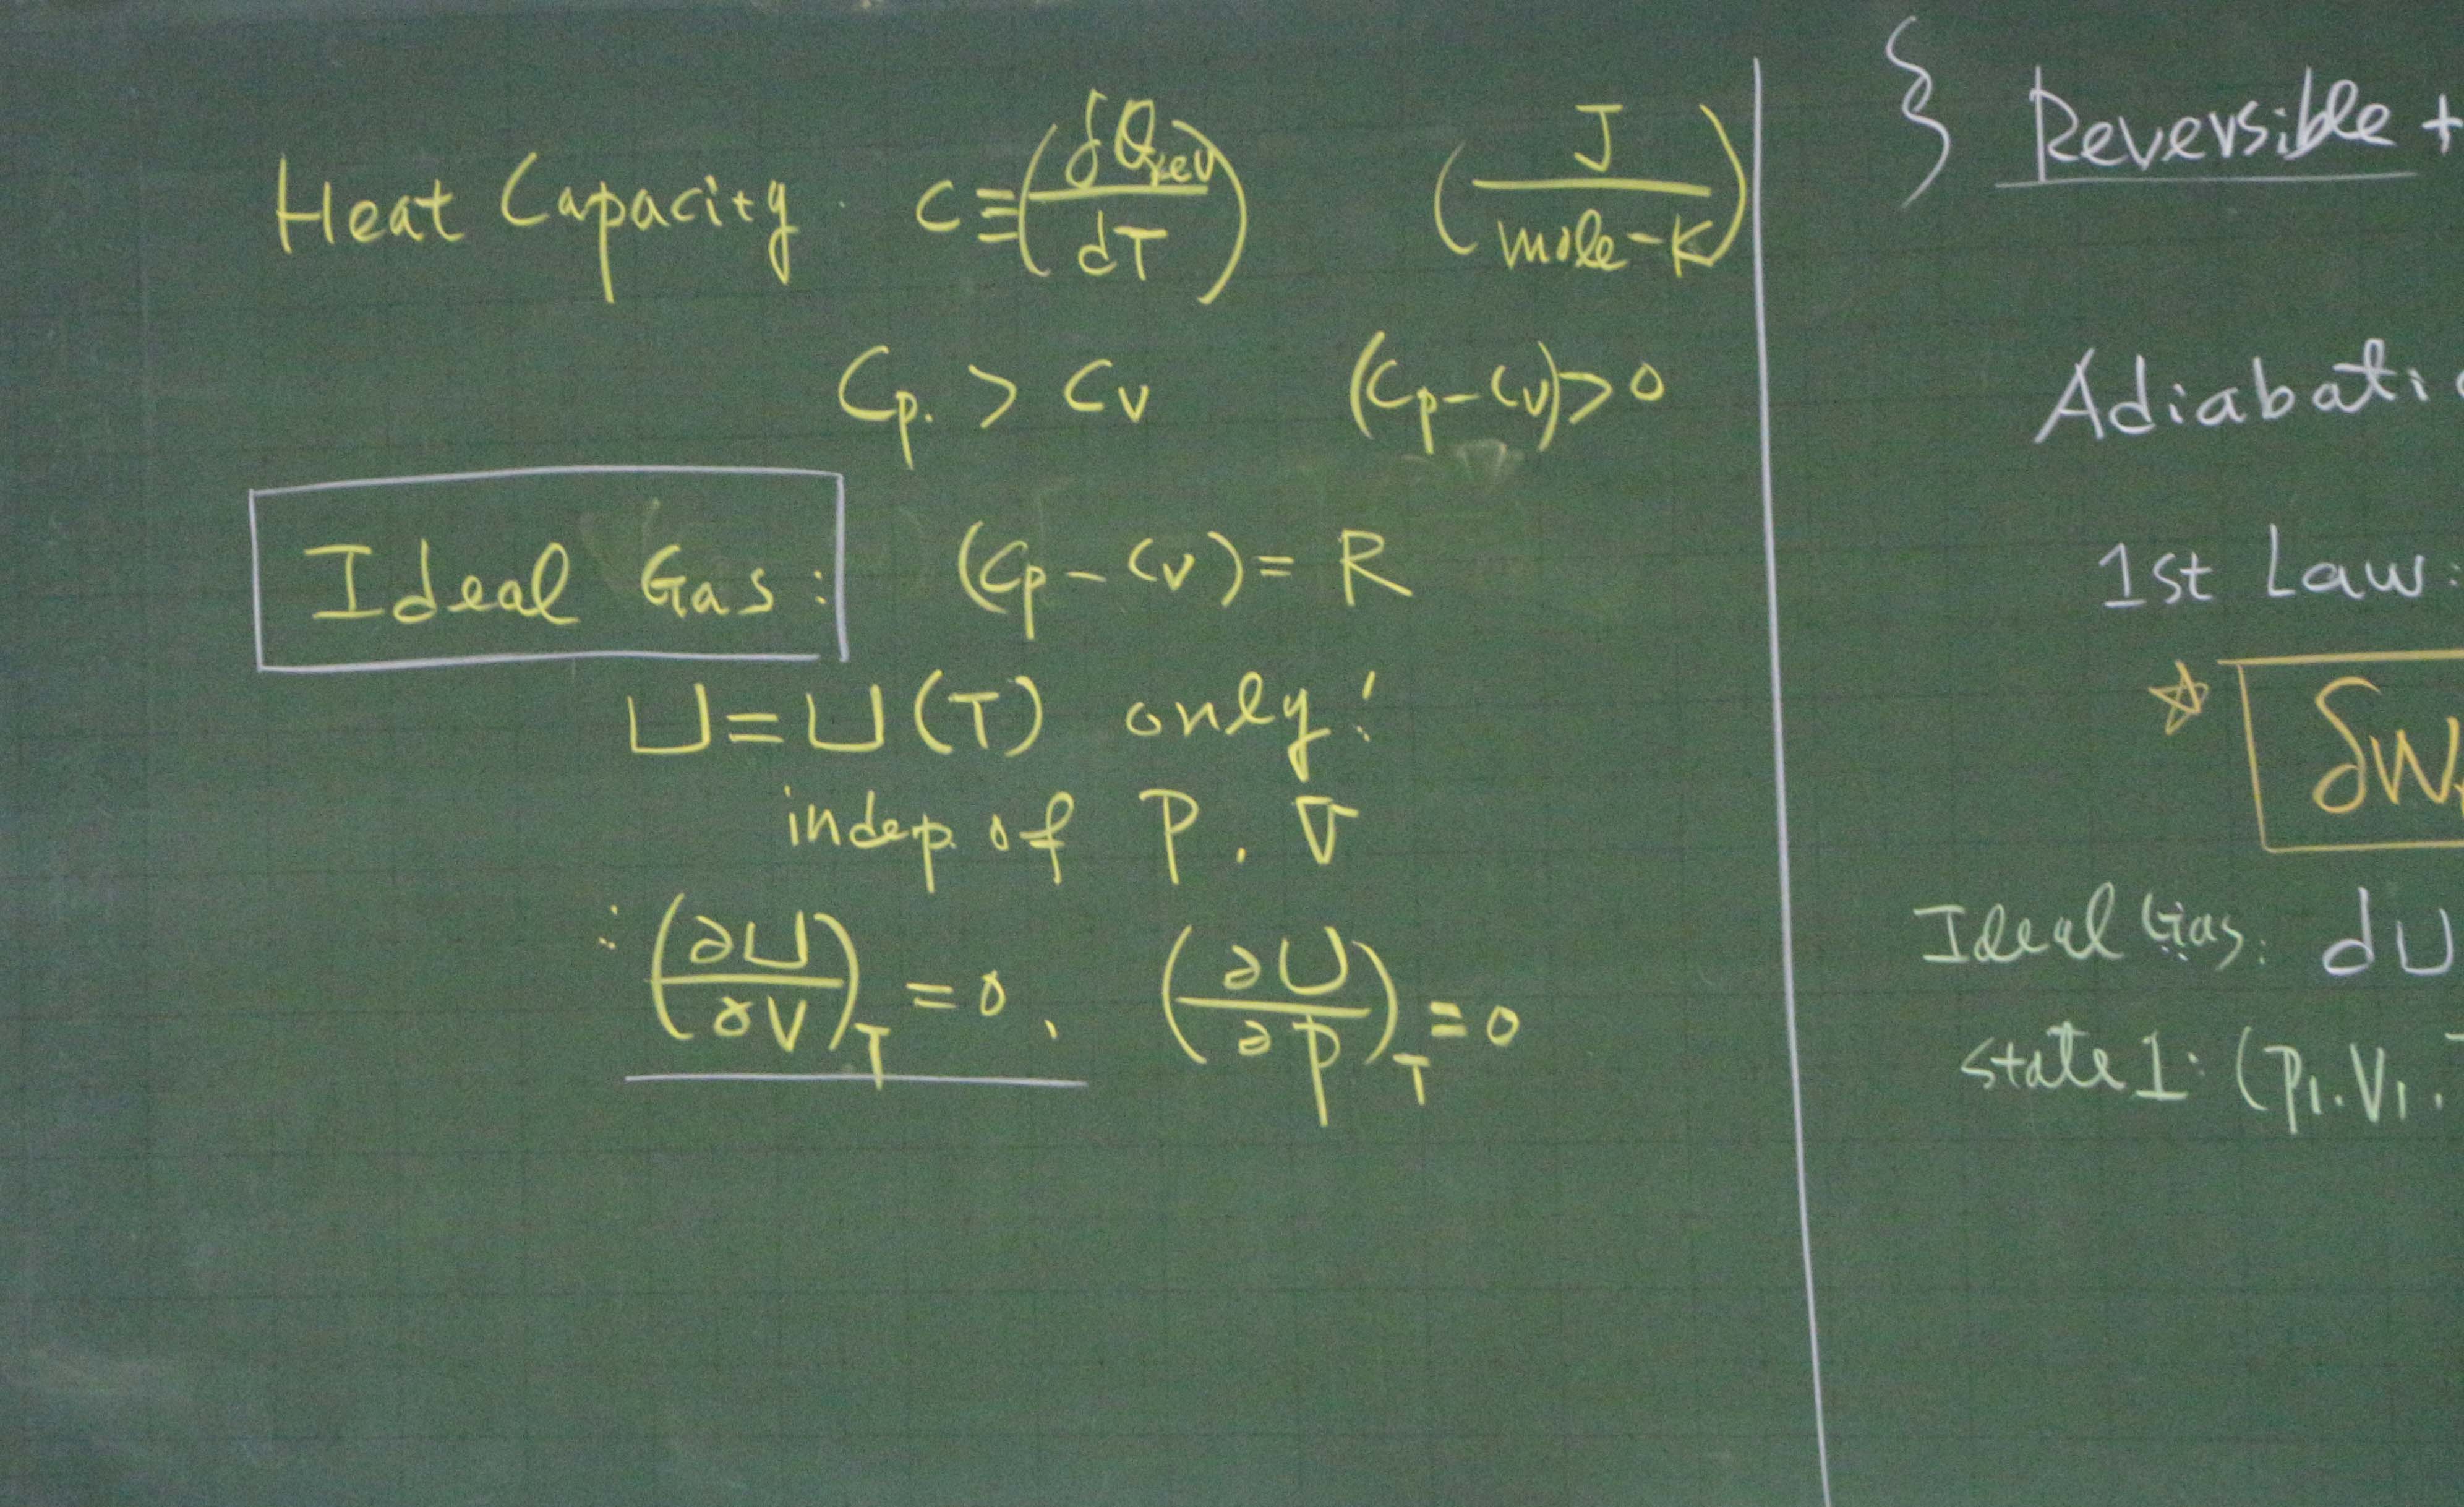 Heat Capacity. C ≡ (δQrev / dT) (J / mole-K)
Cp. > Cv (Cp - Cv) > 0
Ideal Gas: (Cp - Cv) = R
U = U(T) only!
indep. of P, V
∴ (∂U/∂V)T = 0, (∂U/∂P)T = 0
} Reversible +
Adiabatic
1st Law:
☆ δW
Ideal Gas: dU
state 1: (P1, V1,